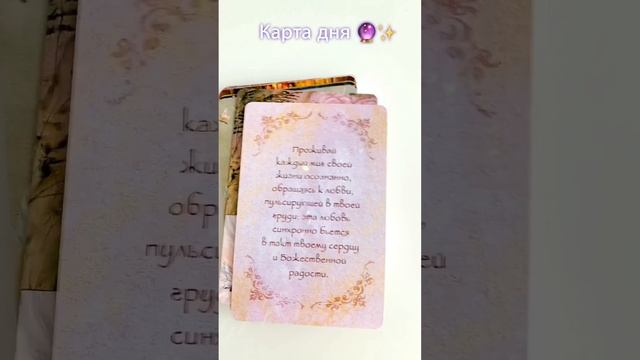 Карта дня 🔮✨
Проживай
каждый миг своей
жизни осознанно,
обращаясь к любви,
пульсирующей в твоей
груди: эта любовь
синхронно бьется
в такт твоему сердцу
и Божественной
радости.